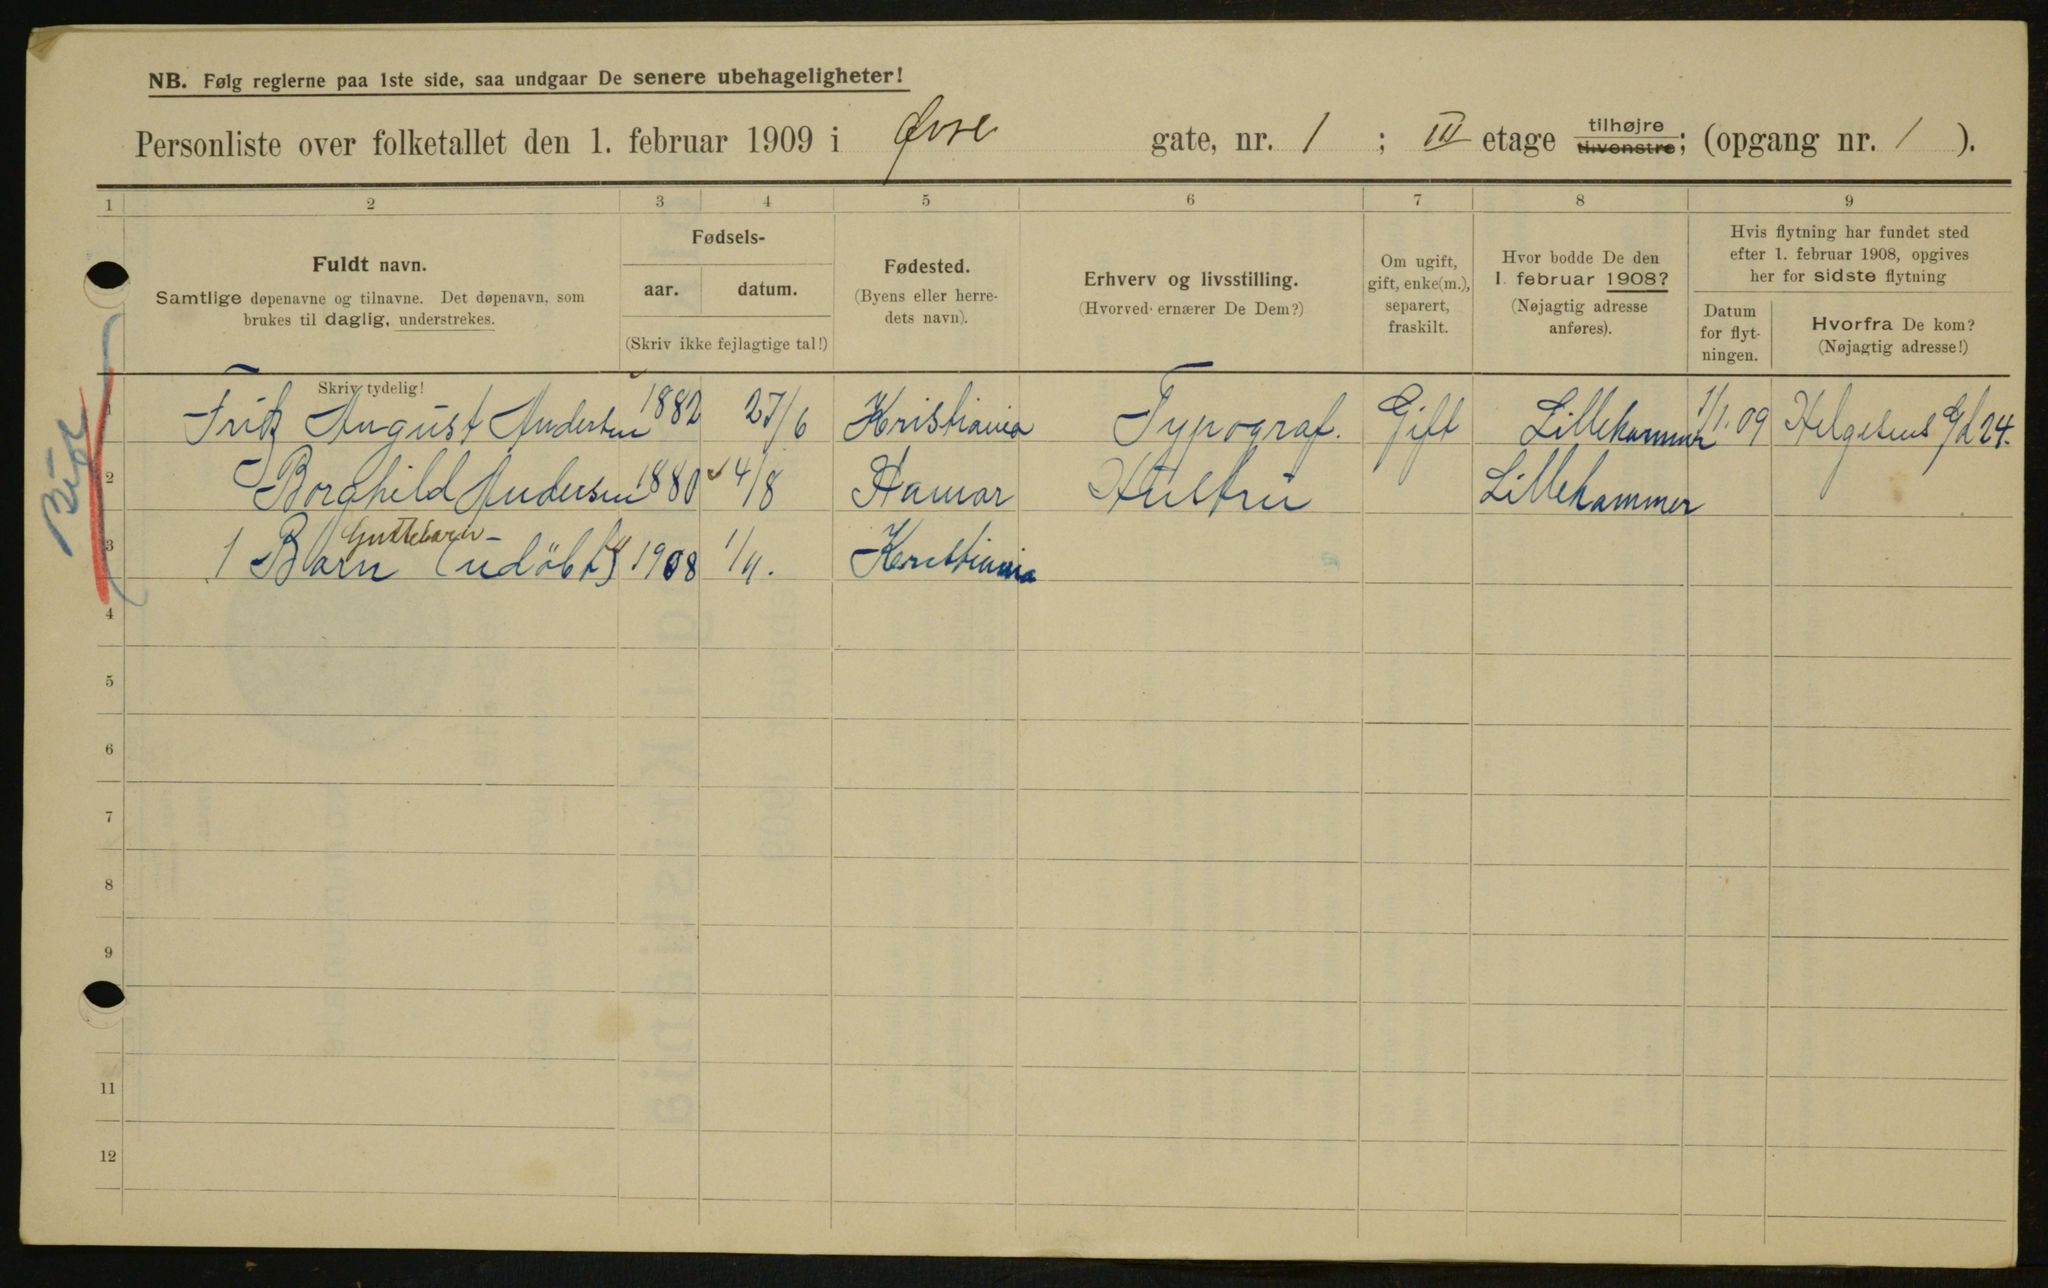 NB. Følg reglerne paa 1ste side, saa undgaar De senere ubehageligheter!
Personliste over folketallet den 1. februar 1909 i Øvre gate, nr. 1 ; III etage tilhøjre tilvenstre; (opgang nr. 1 ).
1 2 3 4 5 6 7 8 9
Fuldt navn.
Samtlige døpenavne og tilnavne. Det døpenavn, som
brukes til daglig, understrekes.
Fødsels-
aar. datum.
(Skriv ikke fejlagtige tal!)
Fødested.
(Byens eller herre-
dets navn).
Erhverv og livsstilling.
(Hvorved ernærer De Dem?)
Om ugift,
gift, enke(m.),
separert,
fraskilt.
Hvor bodde De den
1. februar 1908?
(Nøjagtig adresse
anføres).
Hvis flytning har fundet sted
efter 1. februar 1908, opgives
her for sidste flytning
Datum
for flyt-
ningen.
Hvorfra De kom?
(Nøjagtig adresse!)
Skriv tydelig!
1 Fritz August Andersen 1882 27/6 Kristiania Typograf. Gift Lillehammer 1/1.09 Helgesens g/d 24.
2 Borghild Andersen 1880 4/8 Hamar Hustru Lillehammer
Guttebarn
3 1 Barn (udöbt) 1908 1/11. Kristiania
4
5
6
7
8
9
11
12